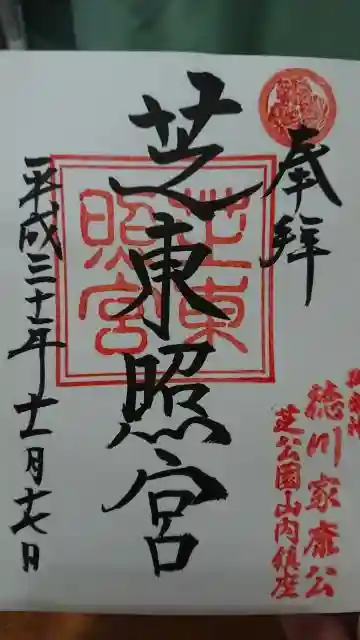 奉拝
芝東照宮
芝東
照宮
平成三十年十一月十七日
徳川家康公
芝公園山内鎮座